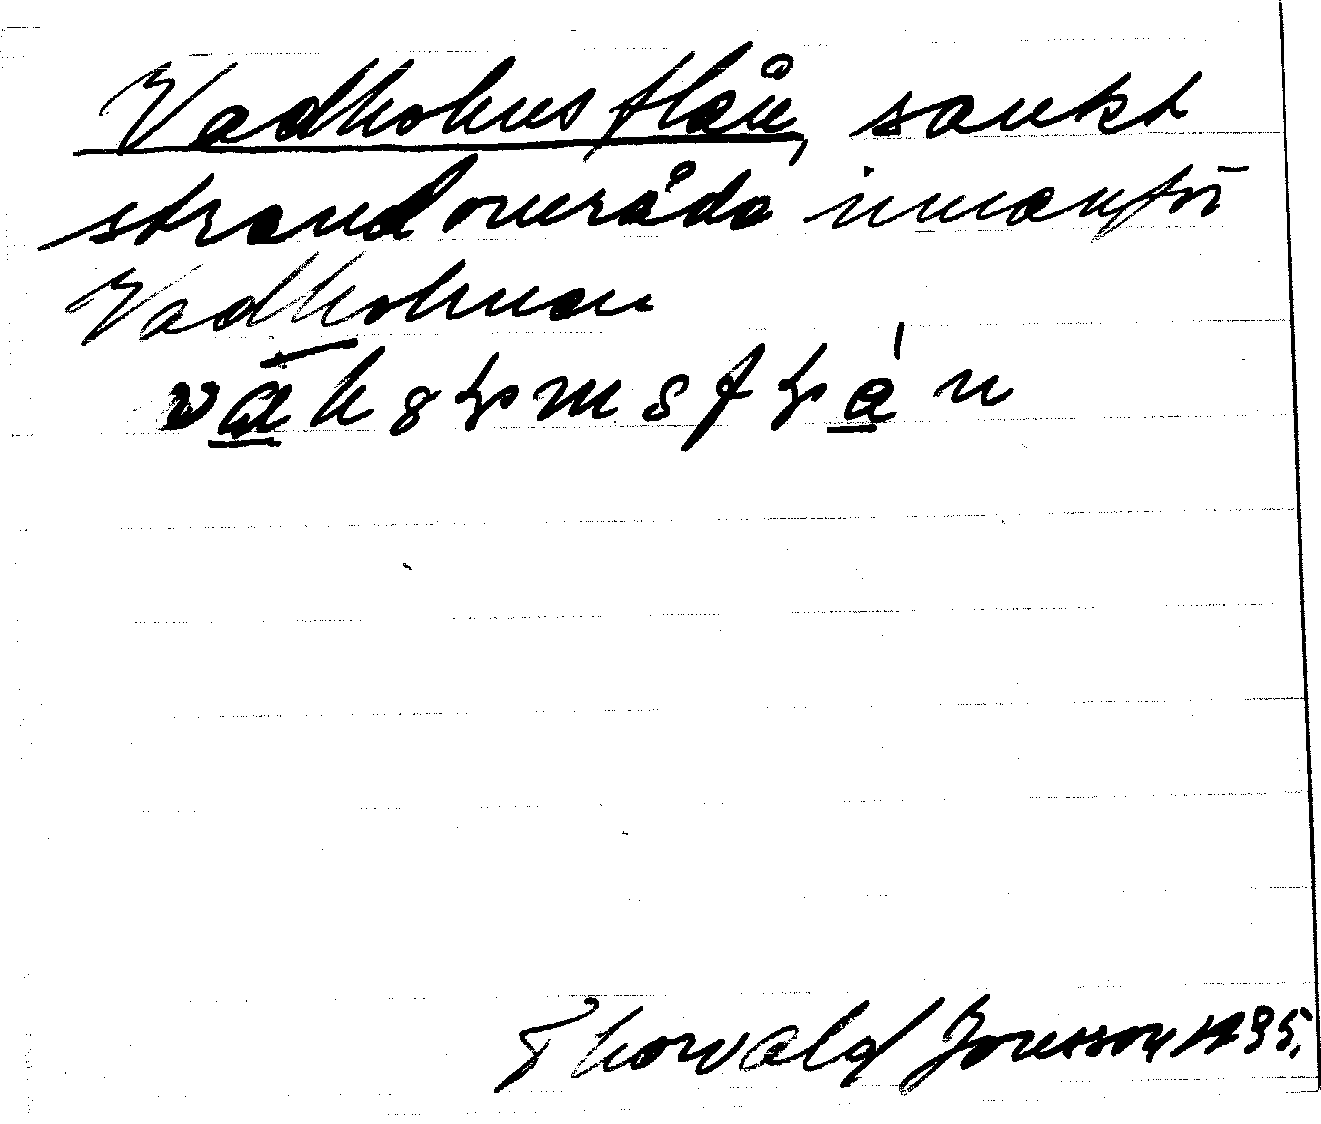 Vadholmsflån, sankt
strandområda innanför
Vadholmen
Thorvald Jonsson 1935.